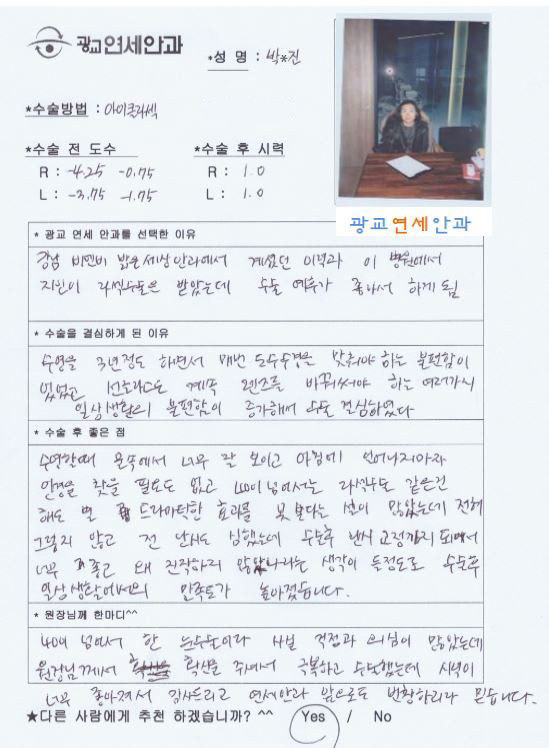 광교연세안과
*성 명 : 박*진
*수술방법 : 아이클라섹
*수술 전 도수
*수술 후 시력
R : -4.25 -0.75
R : 1.0
L : -3.75 -1.75
L : 1.0
광교연세안과
* 광교 연세 안과를 선택한 이유
강남 비앤비 밝은세상안과에서 계셨던 이력과 이 병원에서
지인이 라식수술을 받았는데 수술 예후가 좋아서 하게 됨
* 수술을 결심하게 된 이유
수영을 3년정도 하면서 매번 도수수경을 맞춰야 하는 불편함이
있었고 선글라스도 계속 렌즈를 바꿔써야 하는 여러가지
일상생활의 불편함이 증가해서 수술 결심하였다
* 수술 후 좋은 점
수영할때 물속에서 너무 잘 보이고 아침에 일어나자마자
안경을 찾을 필요도 없고 40이 넘어서는 라식수술 같은건
해도 별 드라마틱한 효과를 못 본다는 설이 많았는데 전혀
그렇지 않고 전 난시도 심했는데 수술후 난시 교정까지 되어서
너무 좋고 왜 진작하지 않았나라는 생각이 들정도로 수술후
일상생활에서의 만족도가 높아졌습니다.
* 원장님께 한마디^^
40에 넘어서 한 눈수술이라 사실 걱정과 의심이 많았는데
원장님께서 확신을 주셔서 극복하고 수술했는데 시력이
너무 좋아져서 감사드리고 연세안과 앞으로도 번창하리라 믿습니다.
★다른 사람에게 추천 하겠습니까? ^^ Yes / No